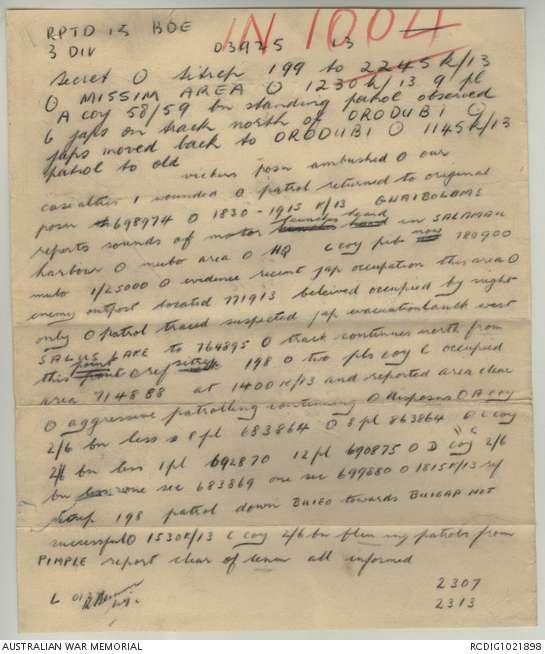 RPTD 15 BDE IN 1004
3 DIV 03925 13
Secret O Sitrep 199 to 2245K/13
O MISSIM AREA O 1230K/13 9 pl
A coy 58/59 bn standing patrol observed
6 japs on track north of ORODUBI O
japs moved back to ORODUBI O 1145K/13
patrol to old
vickers posn ambushed O our
casualties 1 wounded O patrol returned to original
posn 698974 O 1830-1915 K/13
reports sounds of motor in SALAMAUA
harbour O mubo area O HQ C coy now 780900
mubo 1/25000 O evidence recent jap occupation this area O
enemy outpost located 771913 beleived occupied by night
only O patrol traced suspected jap evacuation west
SALUS LAKE to 764895 O track continues north from
this point O ref sitrep 198 O two pls coy C occupied
area 714888 at 1400K/13 and reported area clear
O aggressive patrolling continuing O disposns O A coy
2/6 bn less 8 pl 683864 O 8 pl 863864 O C coy
2/6 bn less 1 pl 692870 12 pl 690875 O D coy 2/6
bn one sec 683869 one sec 699880 O 1815K/13 ref
sitrep 198 patrol down BUIEO towards BUIGAP NOT
successful O 1530K/13 C coy 2/6 bn patrols from
PIMPLE report clear of enemy all informed
2307
2313
AUSTRALIAN WAR MEMORIAL
RCDIG1021898